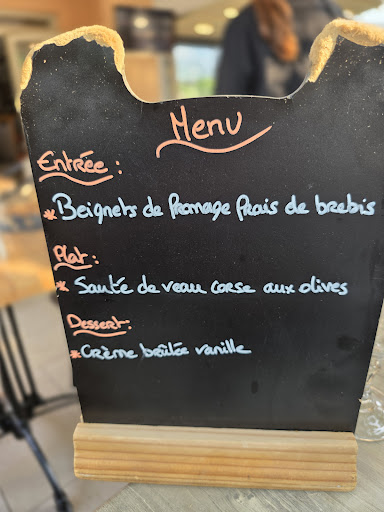 Menu
Entrée :
* Beignets de fromage frais de brebis
Plat :
* Sauté de veau corse aux olives
Dessert :
* Crème brûlée vanille